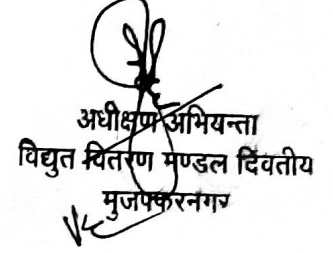 अधीक्षण अभियन्ता
विद्युत वितरण मण्डल दिवतीय
मुजफ्करनगर